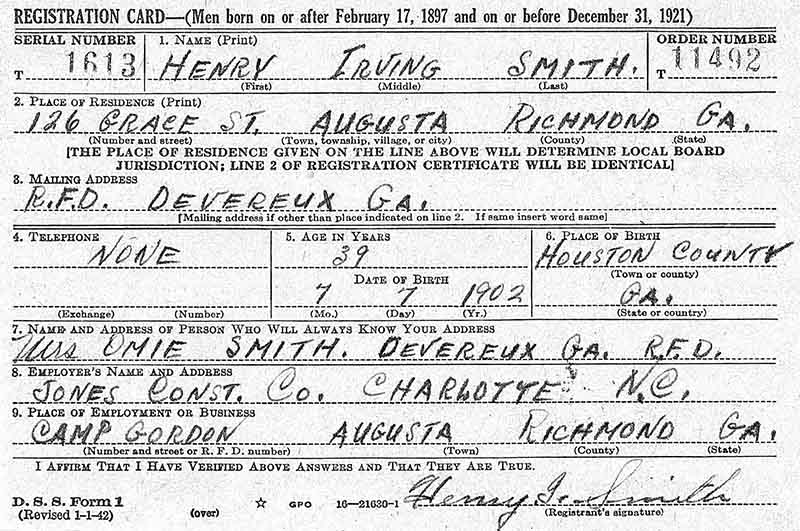 REGISTRATION CARD—(Men born on or after February 17, 1897 and on or before December 31, 1921)
SERIAL NUMBER 1. NAME (Print) ORDER NUMBER
T 1613 HENRY IRVING SMITH. T 11492
(First) (Middle) (Last)
2. PLACE OF RESIDENCE (Print)
126 GRACE ST. AUGUSTA RICHMOND GA.
(Number and street) (Town, township, village, or city) (County) (State)
[THE PLACE OF RESIDENCE GIVEN ON THE LINE ABOVE WILL DETERMINE LOCAL BOARD
JURISDICTION; LINE 2 OF REGISTRATION CERTIFICATE WILL BE IDENTICAL]
3. MAILING ADDRESS
R.F.D. DEVEREUX GA.
[Mailing address if other than place indicated on line 2. If same insert word same]
4. TELEPHONE 5. AGE IN YEARS 6. PLACE OF BIRTH
NONE 39 HOUSTON COUNTY
DATE OF BIRTH (Town or county)
7 7 1902 GA.
(Exchange) (Number) (Mo.) (Day) (Yr.) (State or country)
7. NAME AND ADDRESS OF PERSON WHO WILL ALWAYS KNOW YOUR ADDRESS
Mrs OMIE SMITH. DEVEREUX GA. R.F.D.
8. EMPLOYER'S NAME AND ADDRESS
JONES CONST. CO. CHARLOTTE N.C.
9. PLACE OF EMPLOYMENT OR BUSINESS
CAMP GORDON AUGUSTA RICHMOND GA.
(Number and street or R. F. D. number) (Town) (County) (State)
I AFFIRM THAT I HAVE VERIFIED ABOVE ANSWERS AND THAT THEY ARE TRUE.
D. S. S. Form 1 ☆ GPO 16—21630-1 Henry I. Smith
(Revised 1-1-42) (over) (Registrant's signature)